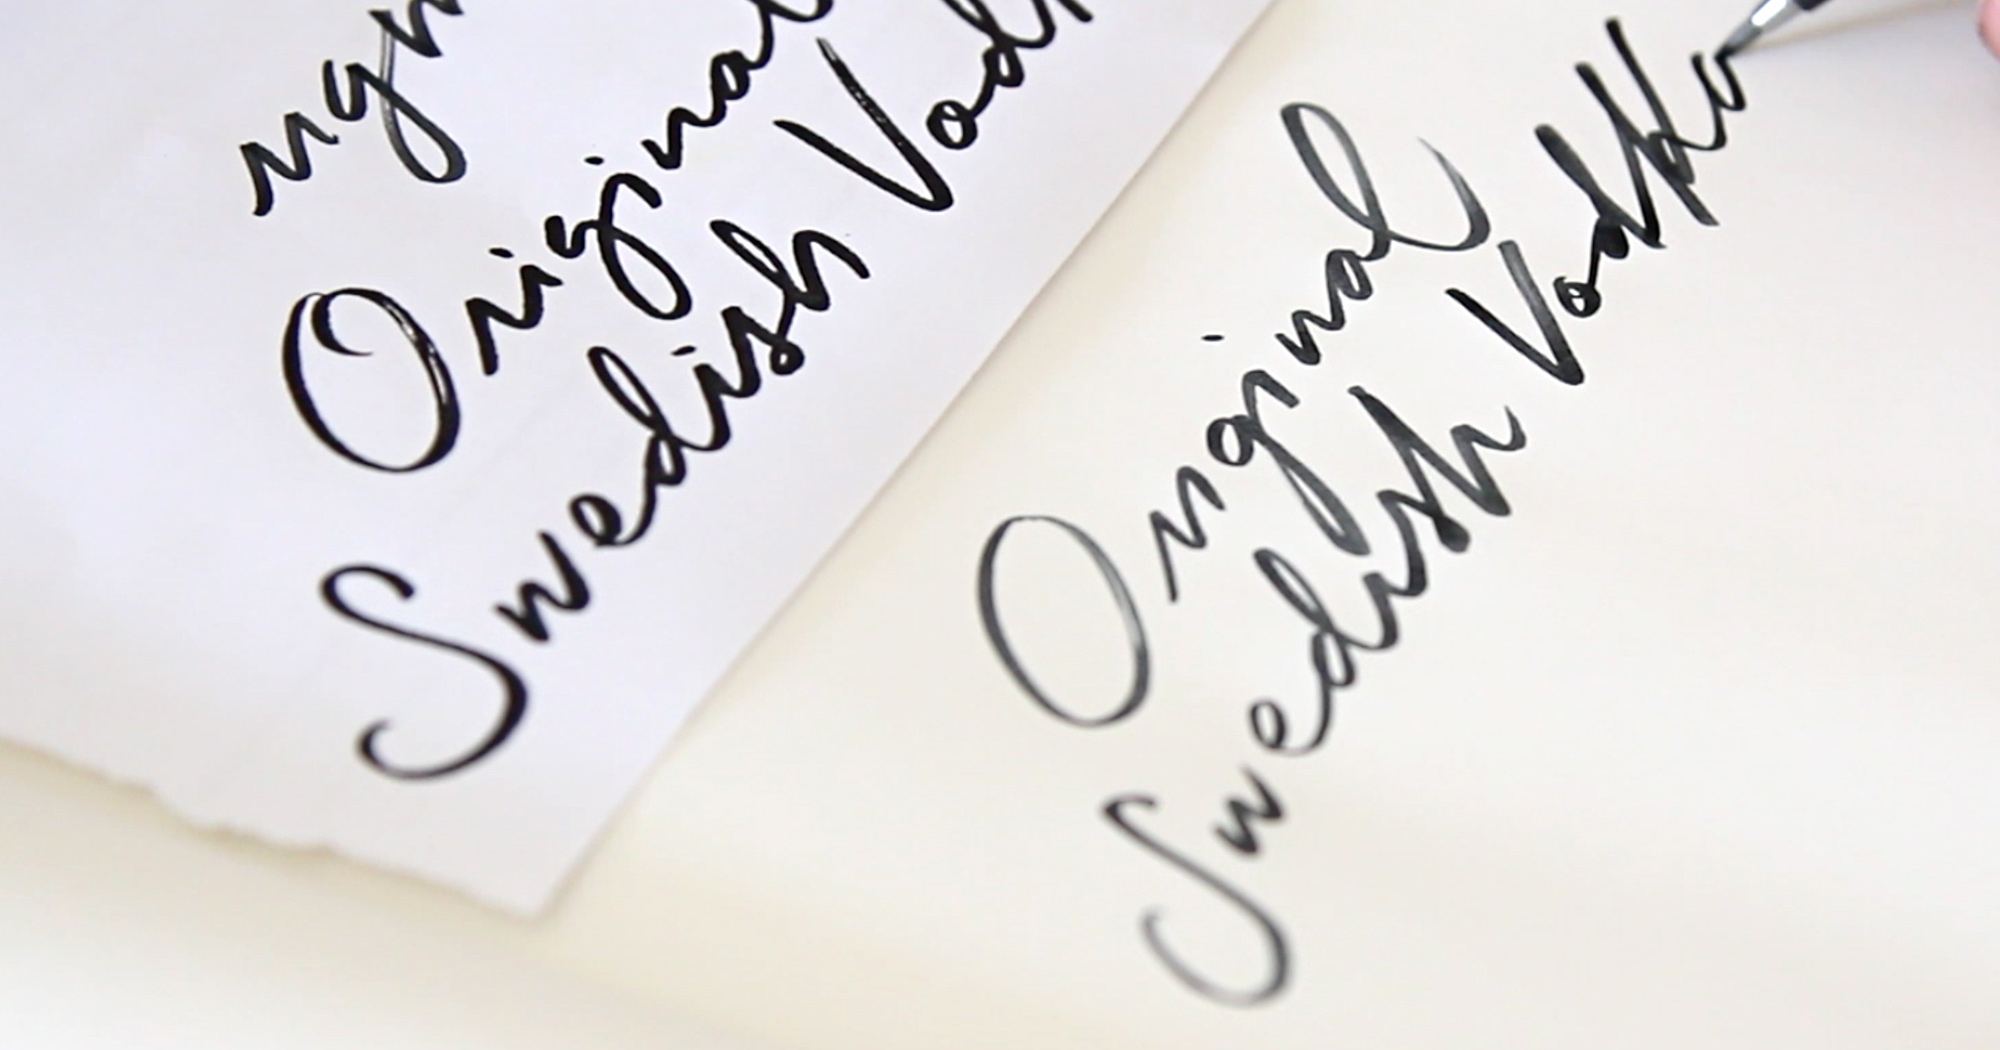 rign
Original
Swedish Vod
Original
Swedish Vodka